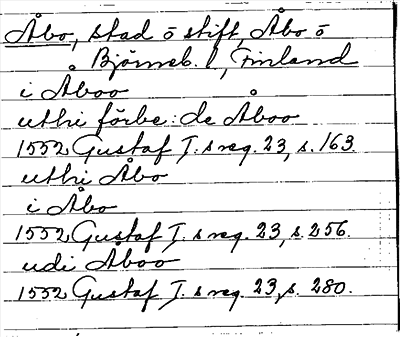 Åbo, stad o stift, Åbo o
Björneb. l, Finland
i Åboo
uthi förbe:de Åboo
1552 Gustaf I.s reg. 23, s. 163.
uthi Åbo
i Åbo
1552 Gustaf I.s reg. 23, s. 256.
udi Åboo
1552 Gustaf I.s reg. 23, s. 280.